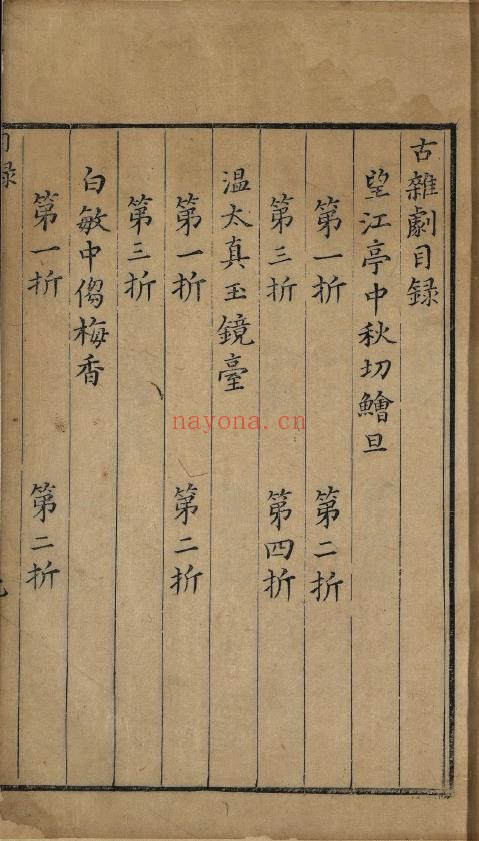 古雜劇目録
望江亭中秋切鱠旦
第一折 第二折
第三折 第四折
温太真玉鏡臺
第一折 第二折
第三折
白敏中㑳梅香
第一折 第二折
目録
nayona.cn